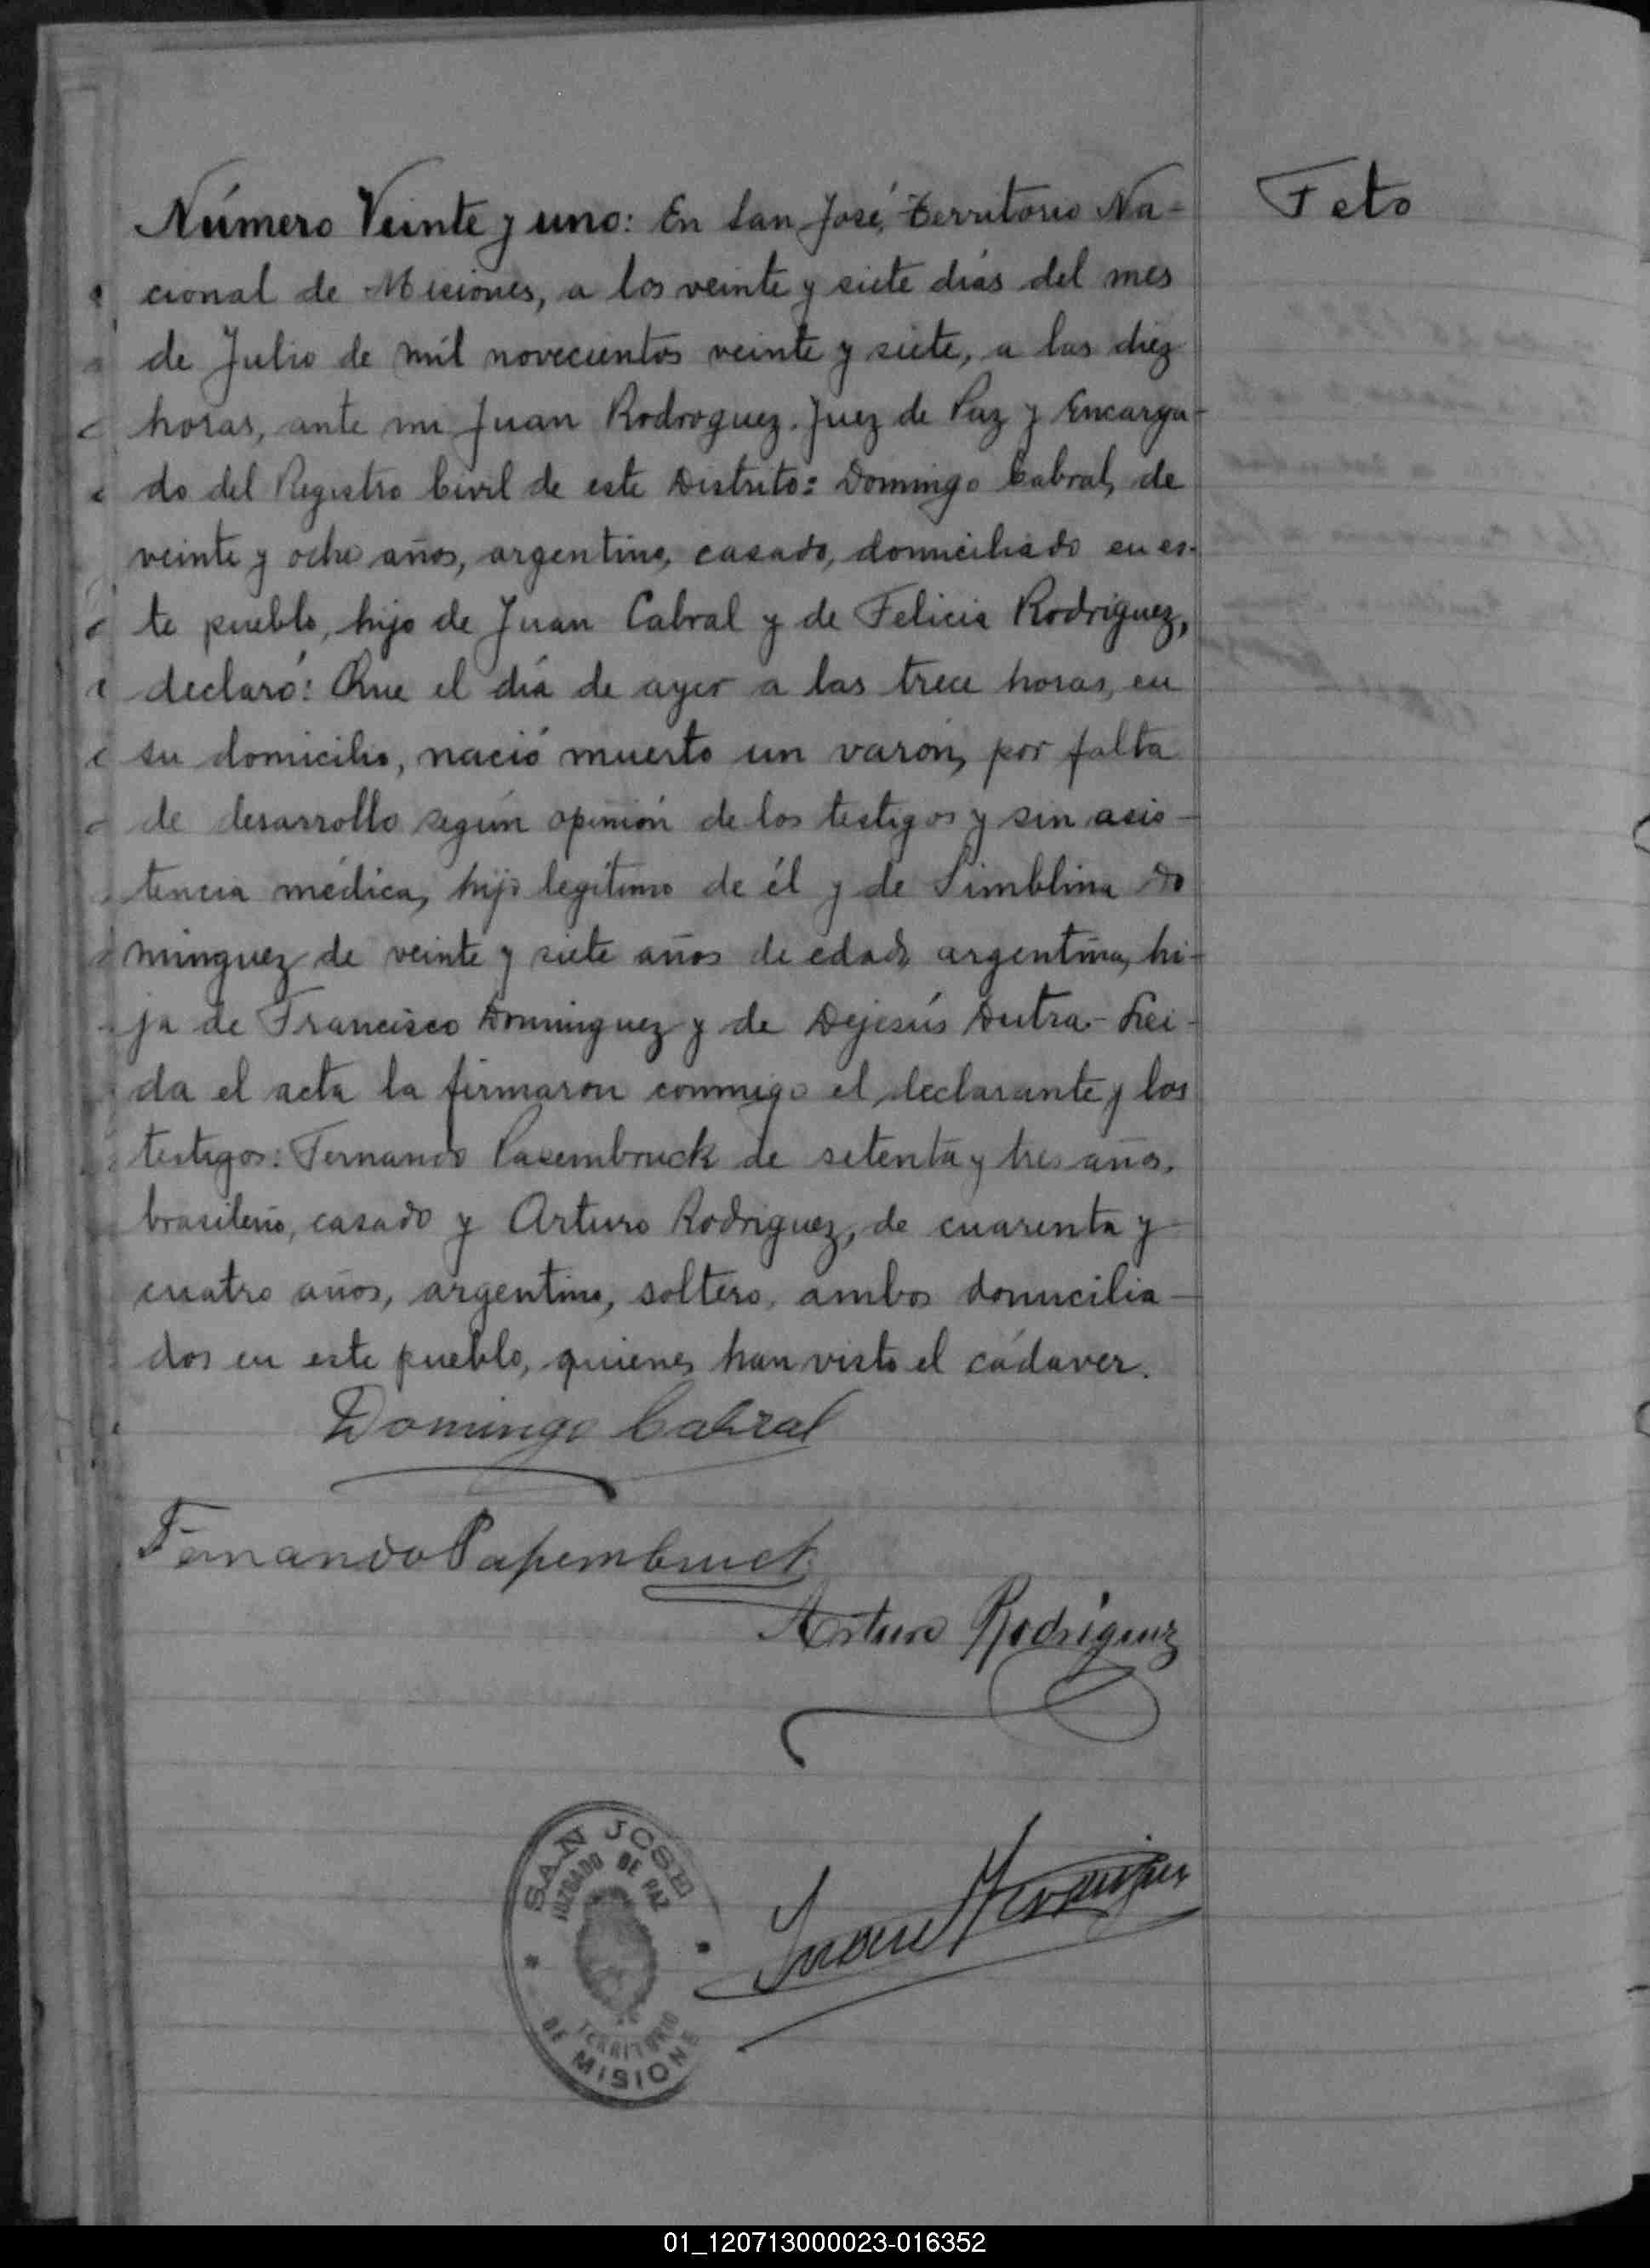 Número Veinte y uno: En San José, Territorio Na-
cional de Misiones, a los veinte y siete días del mes
de Julio de mil novecientos veinte y siete, a las diez
horas, ante mi Juan Rodroguez. Juez de Paz y Encarga-
do del Registro Civil de este Distrito: Domingo Cabral, de
veinte y ocho años, argentino, casado, domiciliado en es-
te pueblo, hijo de Juan Cabral y de Felicia Rodriguez,
declaró: Que el día de ayer a las trece horas, en
su domicilio, nació muerto un varón, por falta
de desarrollo según opinión de los testigos y sin asis-
tencia médica, hijo legítimo de él y de Simblina Do
minguez de veinte y siete años de edad, argentina, hi-
ja de Francisco Dominguez y de Dejesús Dutra.- Lei-
da el acta la firmaron conmigo el declarante y los
testigos: Fernando Papembruck de setenta y tres años,
brasileño, casado y Arturo Rodriguez, de cuarenta y
cuatro años, argentino, soltero, ambos domicilia-
dos en este pueblo, quienes han visto el cádaver.
Domingo Cabral
Fernando Papembruck
Arturo Rodriguez
Feto
SAN JOSE
JUZGADO DE PAZ
TERRITORIO
DE MISIONE
01_120713000023-016352